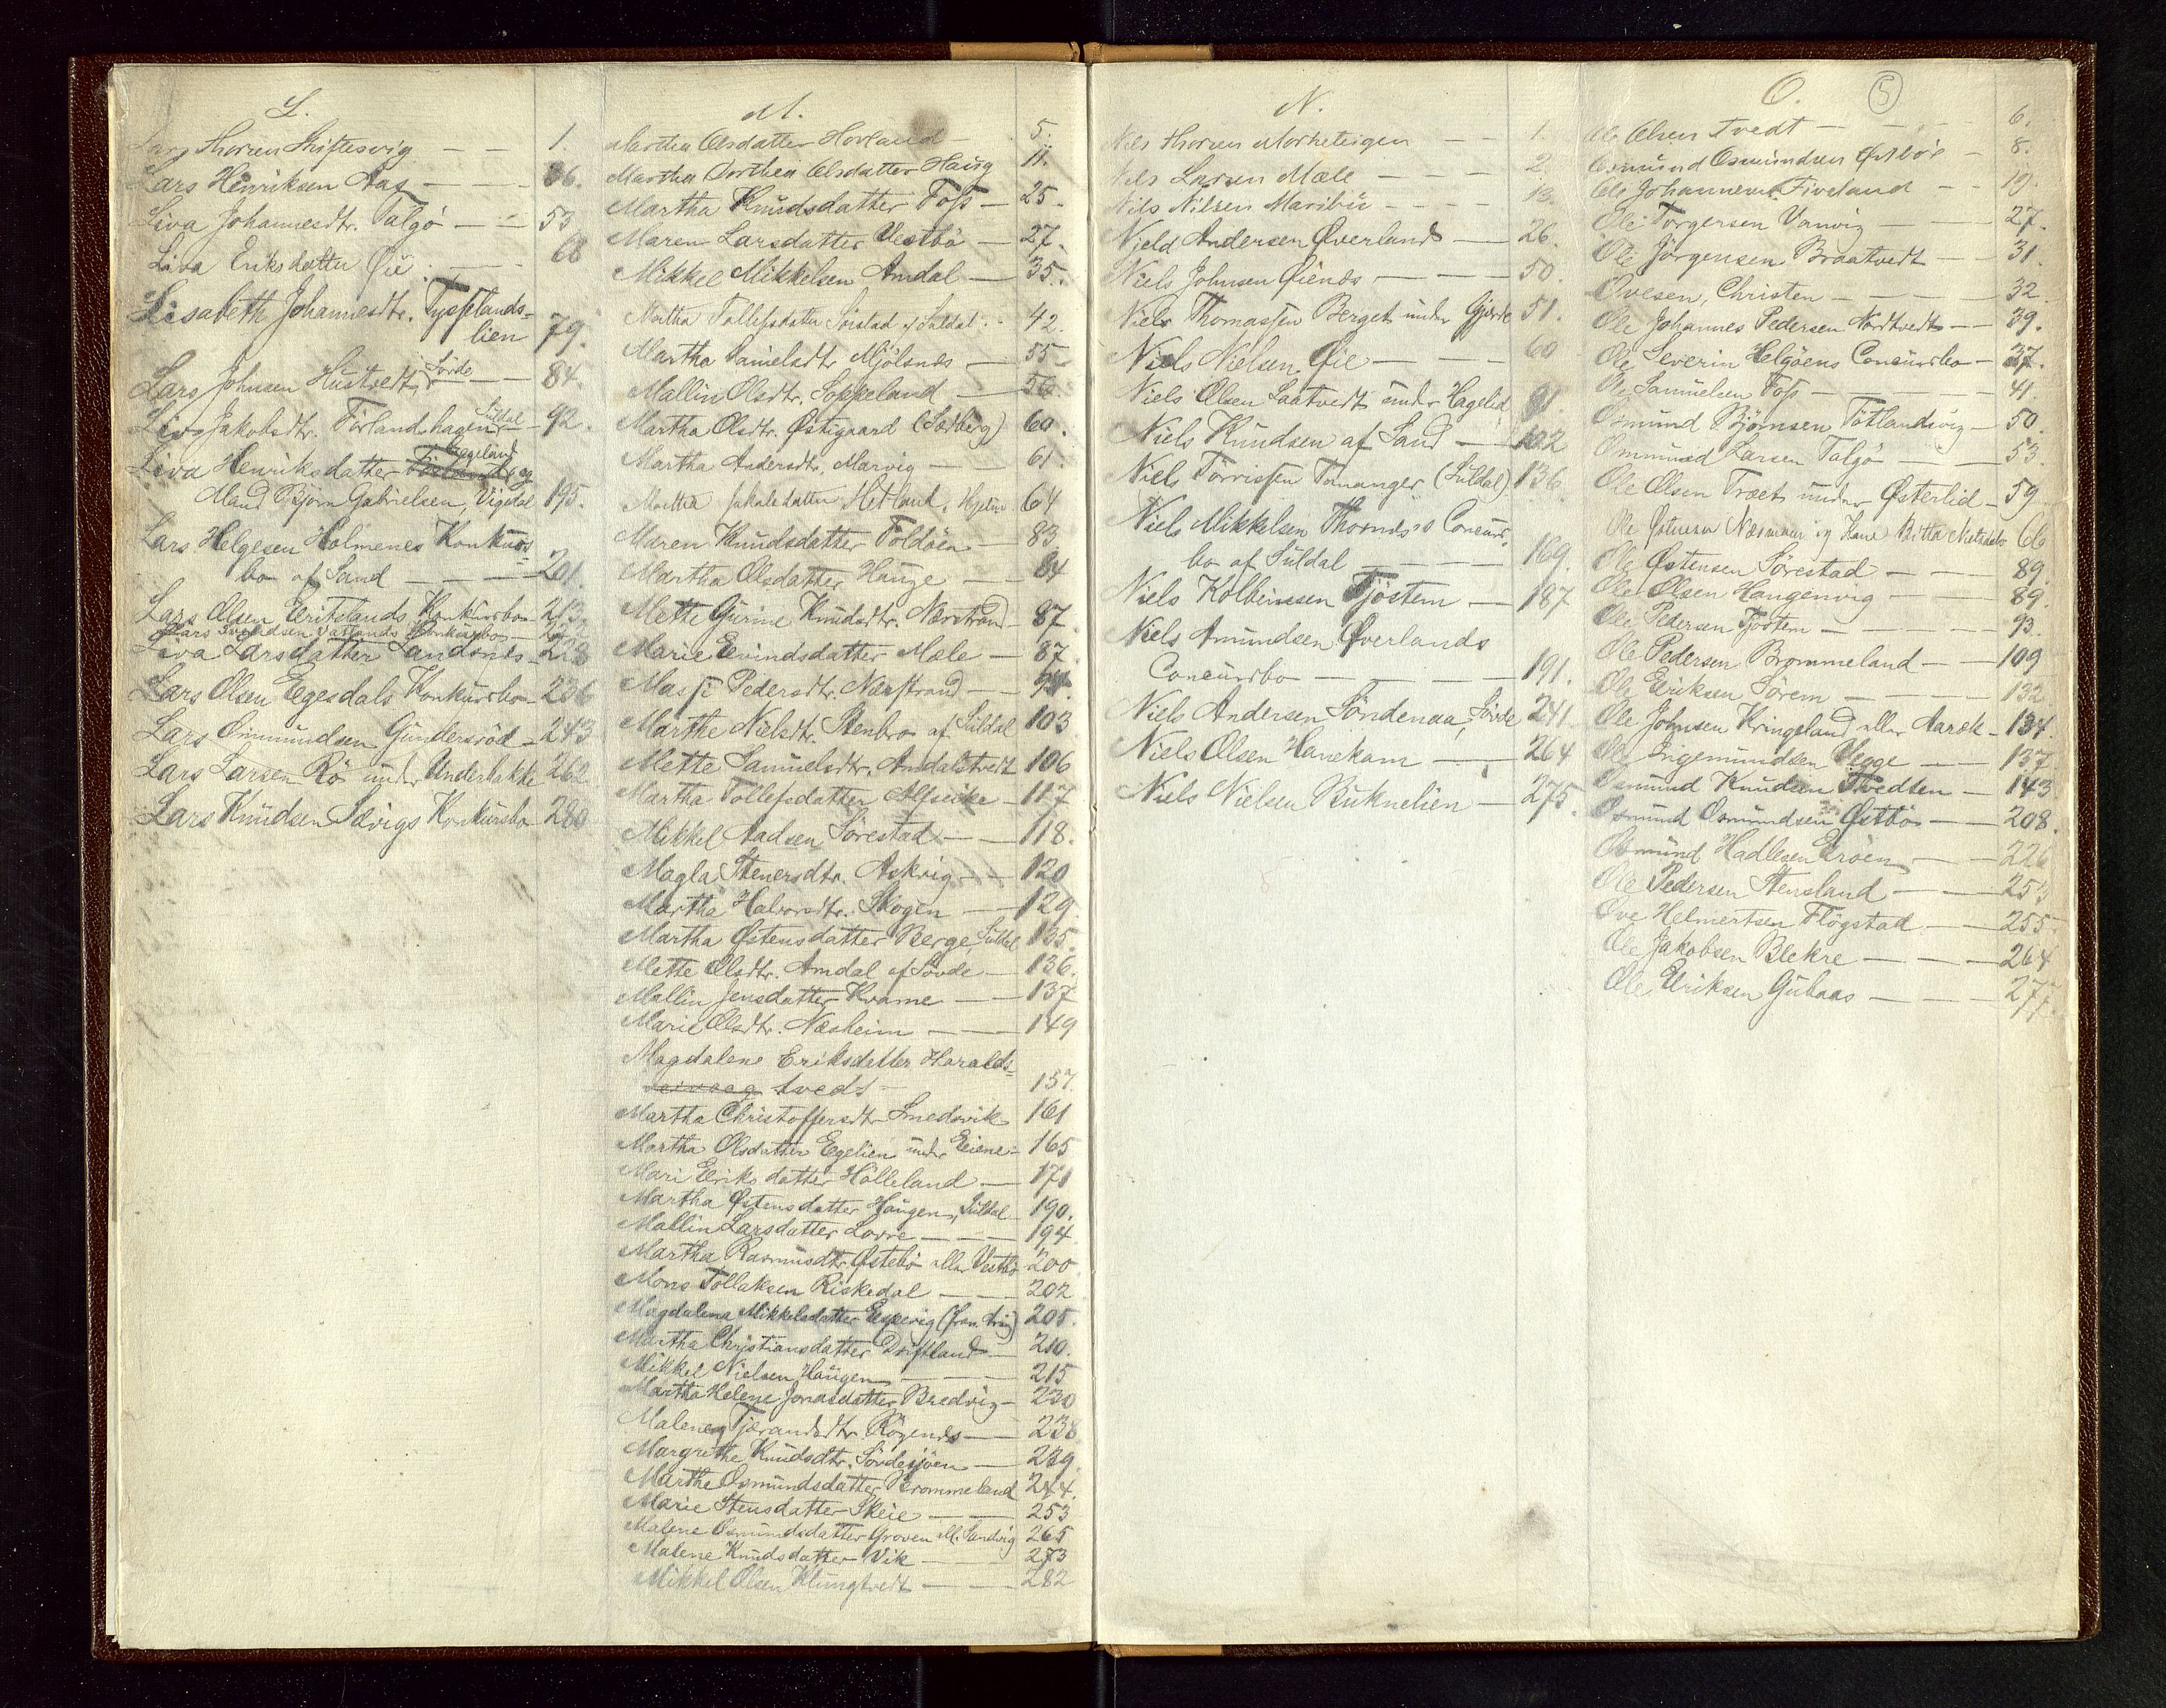 L.
Lars Thorsen Skiftesvig — — 1.
Lars Henriksen Aas — — — 36.
Liva Johannesdtr. Talgö — — 53
Liva Eriksdatter Øie — — 68
Lisabeth Johannesdtr. Tysselands-
lien 79.
Lars Johnsen Hustvedt, Sövde — — 84.
Liva Jakobsdtr. Förlandhagen Süldal — 92.
Liva Henriksdatter Hegeland og
Mand Björn Gabrielsen, Vigedal 195.
Lars Helgesen Holmenes Konkurs-
bo af Sand — — — 201.
Lars Olsen Eritslands Konkursbo — 213
Lars Svendsen Vatlands Konkursbo — 222
Liva Larsdatter Landsnes — 228
Lars Olsen Egesdals Konkursbo — 236
Lars Ommundsen Gundersröd — 243
Lars Larsen Rö under Underbakke 262
Lars Knudsen Sævigs Konkursbo — 280
M.
Martha Olsdatter Hovland — 5.
Martha Dorthea Olsdatter Haug 11.
Martha Knudsdatter Foss — 25.
Maren Larsdatter Vestbö — 27.
Mikkel Mikkelsen Amdal — 35.
Martha Tollefsdatter Sörstad af Suldal 42.
Martha Danielsdtr Mjölsnes — 55
Mallin Olsdtr. Soppeland — 56
Martha Olsdtr. Østigaard (Sædberg) 60.
Martha Andersdtr. Marvig — 61.
Martha Jakobsdatter Hetland, Hjelm 64
Maren Knudsdatter Foldöen — 83
Martha Olsdatter Hauge — 84
Mette Gurine Knudsdtr. Nærstrand — 87.
Marie Eivindsdatter Mæle — 87.
Massi Pedersdtr. Nærstrand — —
Marthe Nielsdtr. Stenbro af Suldal 103
Mette Samuelsdtr. Amdalstvedt 106
Martha Tollefsdatter Alfseike — 117
Mikkel Aadsen Sörestad — — 118.
Magla Stenersdtr. Askvig — — 120
Martha Halvorsdtr. Skogen — 129
Martha Østensdatter Berge Suldal 135.
Mette Olsdtr. Amdal af Sövde — 136.
Mallin Jensdatter Kvame — — 137
Marie Olsdtr. Næsheim — — 149
Magdalene Eriksdatter Haralds-
tvedt — 157.
Martha Christoffersdtr. Smedsvik 161
Martha Olsdatter Egelien under Eiene — 165
Mari Eriksdatter Hålleland — 171
Martha Østensdatter Haugen, Suldal 190.
Mallin Larsdatter Lovre — — 194.
Martha Rasmusdtr. Østebö eller Vestbö 200
Mons Tollaksen Riskedal — — 202
Magdalena Mikkelsdatter Espevig 205.
Martha Christiansdatter Driftland — 210.
Mikkel Nielsen Haugen — — 215
Martha Helene Jonasdatter Bredvig — 230
Malene Tjerandsdtr. Rögenes — 238
Margrethe Knudsdtr. Sövdesjöen — 239.
Marthe Osmundsdatter Brommeland 244.
Marie Stensdatter Skeie — — 253
Malene Osmundsdatter Groven ell. Sandvig 265
Malene Knudsdatter Vik — — 273
Mikkel Olsen Klungtvedt — — 282
N.
Niels Thorsen Morketeigen — — 1.
Niels Larsen Mæle — — — 2.
Nils Nilsen Maribu — — — 13.
Nield Andersen Øverland — — 26.
Niels Johnsen Øienes — — — 50.
Niels Thomassen Berget under Gjerde 51.
Niels Nielsen Øie — — — 60
Niels Olsen Laatvedt under Hagelid 91.
Niels Knudsen af Sand — — 102
Niels Törrissen Tananger (Süldal) 136.
Niels Mikkelsen Thornæs's Concurs-
bo af Suldal — — — 169.
Niels Kolbeinsen Tjöstem — — 187
Niels Amundsen Øverlands
Concursbo — — — 191.
Niels Andersen Söndenaa, Sövde 241.
Niels Olsen Hanekam — — 264
Niels Nielsen Buknelien — — 275.
O. 5
Ole Olsen Tvedt — — — 6.
Osmund Osmundsen Østböe — 8.
Ole Johannesen Fiveland — — 19.
Ole Torgersen Vanvig — — 27.
Ole Jörgensen Braatvedt — — 31.
Ovesen, Christen — — — 32.
Ole Johannes Pedersen Nordtvedt — — 39.
Ole Severin Helgöens Concursbo — 37.
Ole Samuelsen Foss — — — 41.
Osmund Björnsen Tötlandsvig — 50.
Ommund Larsen Talgö — — 53.
Ole Olsen Træet under Østerlid — 59.
Ole Østensen Næsmoen og Kone Britta Nielsdatter 66
Ole Østensen Sörestad — — 89.
Ole Olsen Haugenvig — — 89.
Ole Pedersen Tjöstem — — 93.
Ole Pedersen Brommeland — — 109
Ole Eriksen Sörem — — — 132
Ole Johnsen Kringeland eller Aarek — 134.
Ole Ingemundsen Vegge — — 137.
Osmund Knudsen Tvedten — 143
Osmund Osmundsen Østbö — — 208.
Osmund Hadlesen Eröen — — 226
Ole Pedersen Stensland — — 253
Ove Helmertsen Flögstad — — 255
Ole Jakobsen Blekre — — — 264
Ole Eriksen Gubaas — — — 277